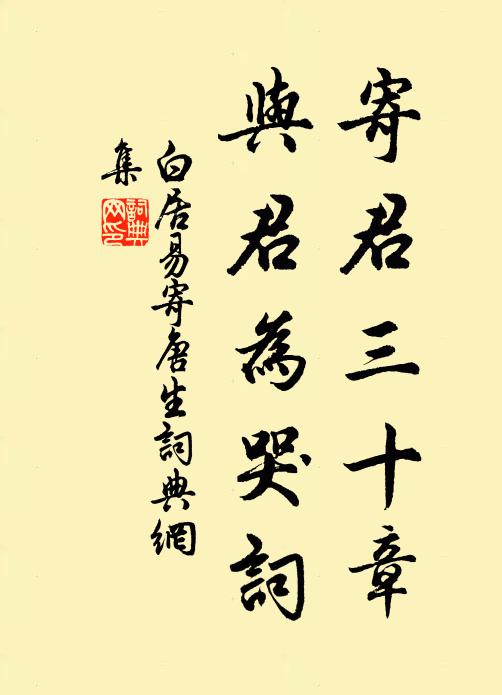 寄君三十章
與君為哭詞
白居易寄唐生詞典網
集
詞典
网印